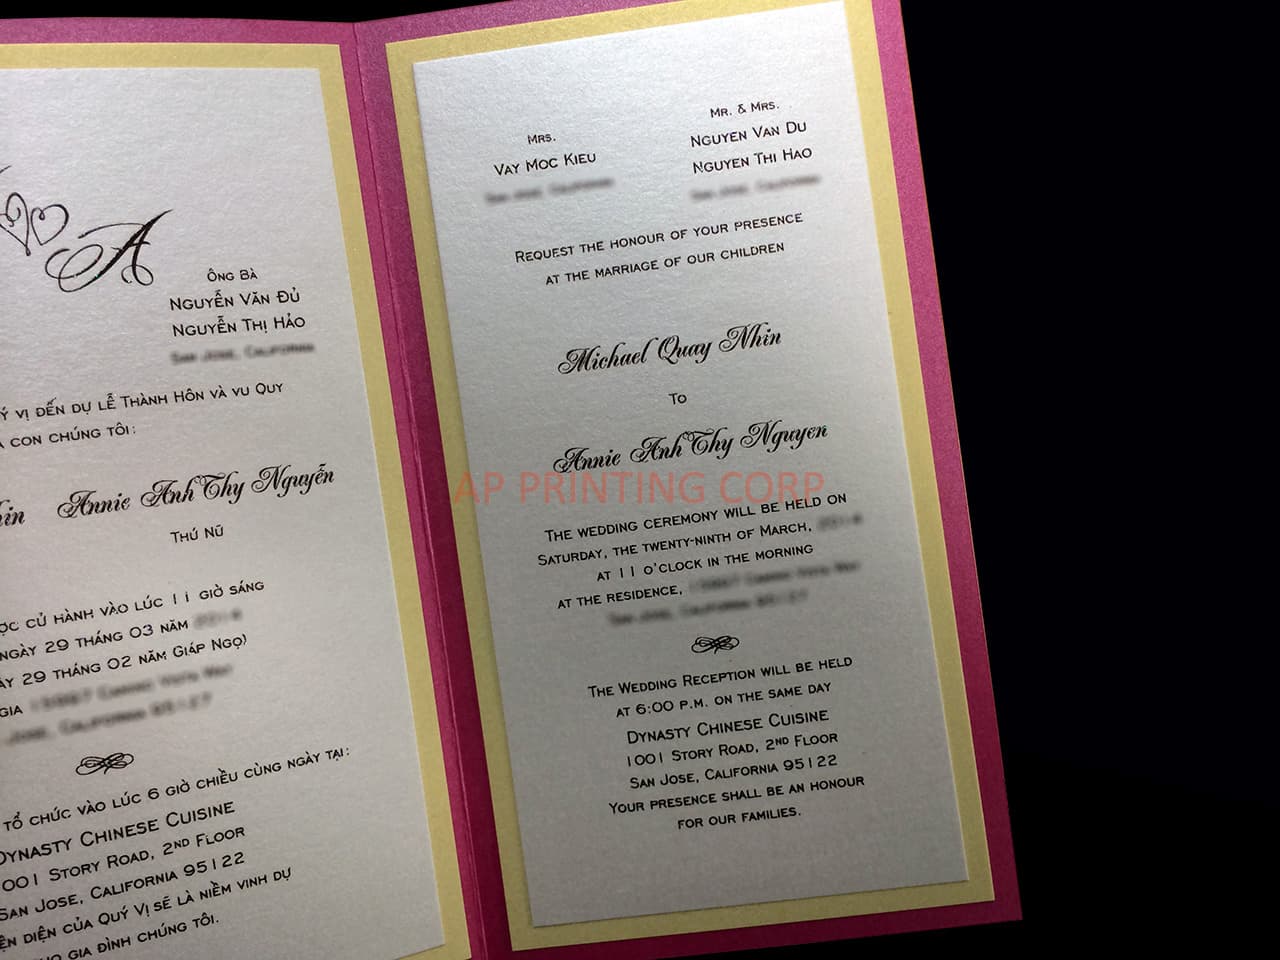 A
Ông Bà
Nguyễn Văn Đủ
Nguyễn Thị Hảo
San Jose, California
ý vị đến dự lễ Thành Hôn và vu Quy
con chúng tôi:
Annie Anh Thy Nguyễn
Thứ Nữ
cử hành vào lúc 11 giờ sáng
ngày 29 tháng 03 năm
29 tháng 02 năm Giáp Ngọ)
gia
Jose, California 95127
tổ chức vào lúc 6 giờ chiều cùng ngày tại:
Dynasty Chinese Cuisine
1001 Story Road, 2nd Floor
San Jose, California 95122
diện của Quý Vị sẽ là niềm vinh dự
gia đình chúng tôi.
Mrs.
Vay Moc Kieu
San Jose, California
Mr. & Mrs.
Nguyen Van Du
Nguyen Thi Hao
San Jose, California
Request the honour of your presence
at the marriage of our children
Michael Quay Nhin
To
Annie Anh Thy Nguyen
AP PRINTING CORP
The wedding ceremony will be held on
Saturday, the twenty-ninth of March,
at 11 o'clock in the morning
at the residence,
San Jose, California 95127
The Wedding Reception will be held
at 6:00 p.m. on the same day
Dynasty Chinese Cuisine
1001 Story Road, 2nd Floor
San Jose, California 95122
Your presence shall be an honour
for our families.